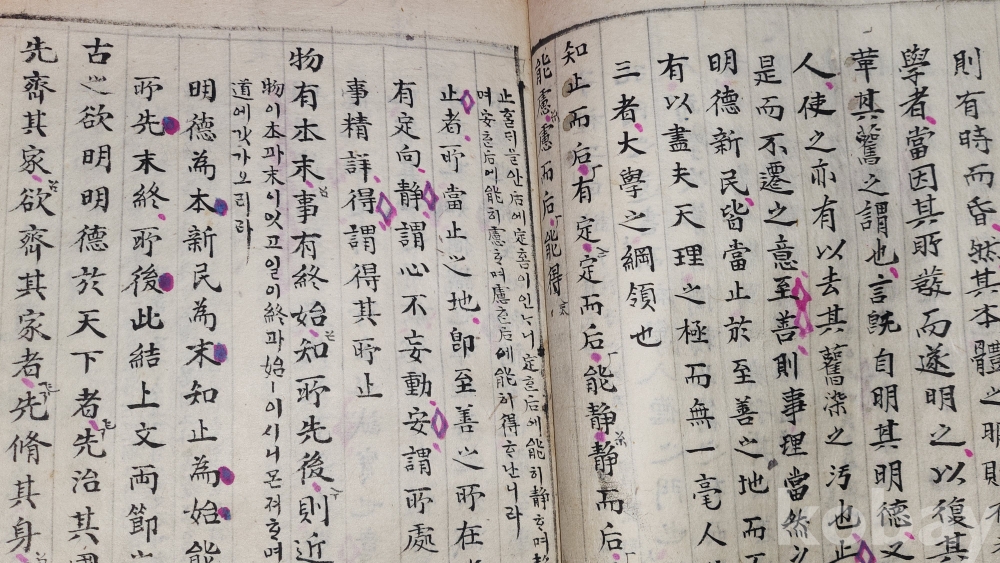 則有時而昏然其本體之明則有
學者當因其所發而遂明之以復其
革其舊之謂也言旣自明其明德又
人使之亦有以去其舊染之汚也止
是而不遷之意至善則事理當然之
明德新民皆當止於至善之地而不
有以盡夫天理之極而無一毫人
三者大學之綱領也
知止而后有定定而后能静静而后
能慮慮而后能得
止홀디를안后에定홈이인ᄂᆞ니定ᄒᆞᆫ后에能히静ᄒᆞ며
며安ᄒᆞᆫ后에能히慮ᄒᆞ며慮ᄒᆞᆫ后에能히得ᄒᆞᄂᆞ니라
止者所當止之地卽至善之所在
有定向静謂心不妄動安謂所處
事精詳得謂得其所止
物有本末事有終始知所先後則近
物이本과末이잇고일이終과始ㅣ이시니몬져ᄒᆞ며
道에갓가오리라
明德為本新民為末知止為始能
所先末終所後此結上文両節
古之欲明明德於天下者先治其
先齊其家欲齊其家者先脩其身
kobay